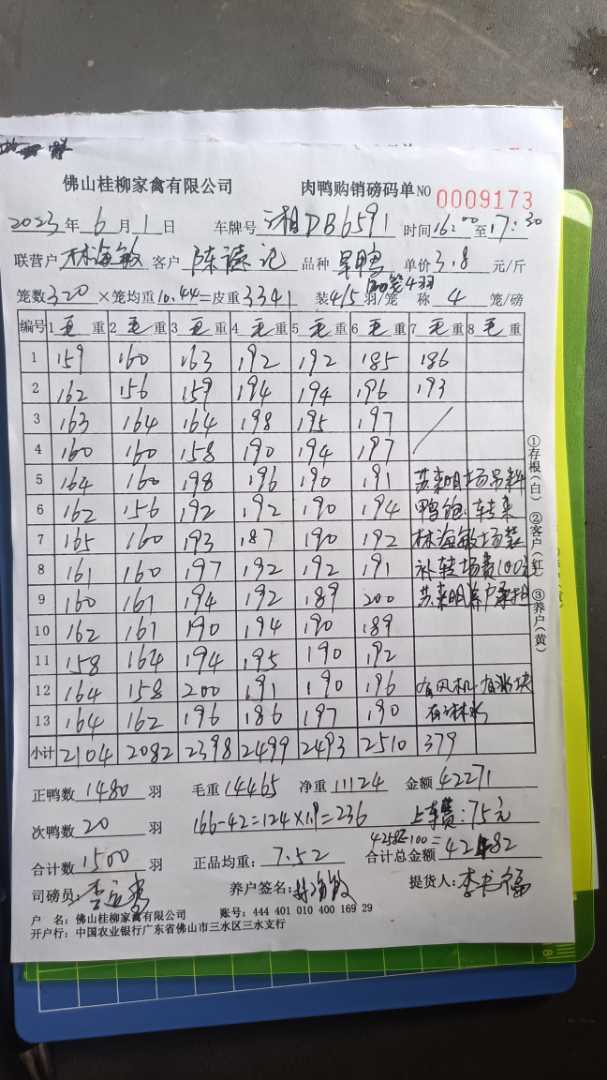 佛山桂柳家禽有限公司 肉鸭购销磅码单 NO 0009173
2023年6月1日 车牌号 湘DB6591 时间16:00至17:30
联营户 林海敏 客户 陈 记 品种 旱鸭 单价 3.8 元/斤
180笼4羽
笼数320 ×笼均重10.44=皮重3341 装4/5羽/笼 称4笼/磅
编号 1 毛重 2 毛重 3 毛重 4 毛重 5 毛重 6 毛重 7 毛重 8 毛重
1 159 160 163 192 192 185 186
2 162 156 159 194 194 196 193
3 163 164 164 198 195 197 /
4 160 160 158 190 194 197
5 164 160 198 196 190 191 苏来明场吊料
6 162 156 192 192 190 194 鸭 转来
7 165 160 193 187 190 192 林海敏场装
8 161 160 197 192 192 191 补转场费100元
9 160 167 194 192 189 200 苏来明养户承担
10 162 167 190 194 190 189
11 158 164 194 195 190 192
12 164 158 200 191 190 196 有风机 有冰块
13 164 162 196 186 197 190 有淋水
小计 2104 2082 2398 2499 2493 2510 379
①存根(白) ②客户(红) ③养户(黄)
正鸭数1480羽 毛重14465 净重11124 金额42271
次鸭数20羽 166-42=124×1.9=236 上车费:75元
42582-100=
合计数1500羽 正品均重:7.52 合计总金额 42482
司磅员: 养户签名:林海敏 提货人:李书福
户 名:佛山桂柳家禽有限公司 账号:444 401 010 400 169 29
开户行:中国农业银行广东省佛山市三水区三水支行